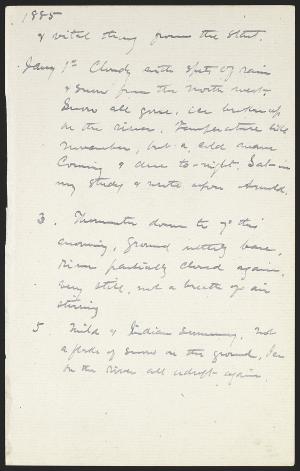 1885
& vital thing from the start.
Jany 1st Cloudy with spits of rain
& snow from the north west.
Snow all gone, ice broken up
on the river. Temperature like
November, but a cold wave
coming & due to-night. Sat in
my study & wrote upon Arnold.
3. Thermometer down to 7° this
morning, ground nearly bare,
river partially closed again,
very still, not a breath of air
stirring
5. Mild & Indian summery. Not
a flake of snow on the ground, Ice
on the river all adrift again.